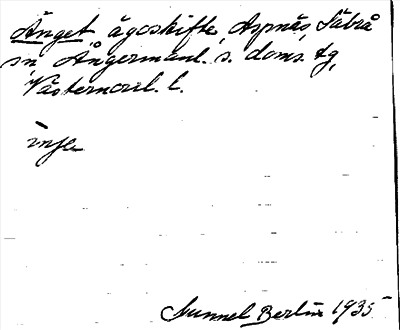 Änget ägoskifte, Aspnäs, Säbrå
sn, Ångermanl. s. doms. tg,
Västernorrl. l.
Gunnel Bertius 1935